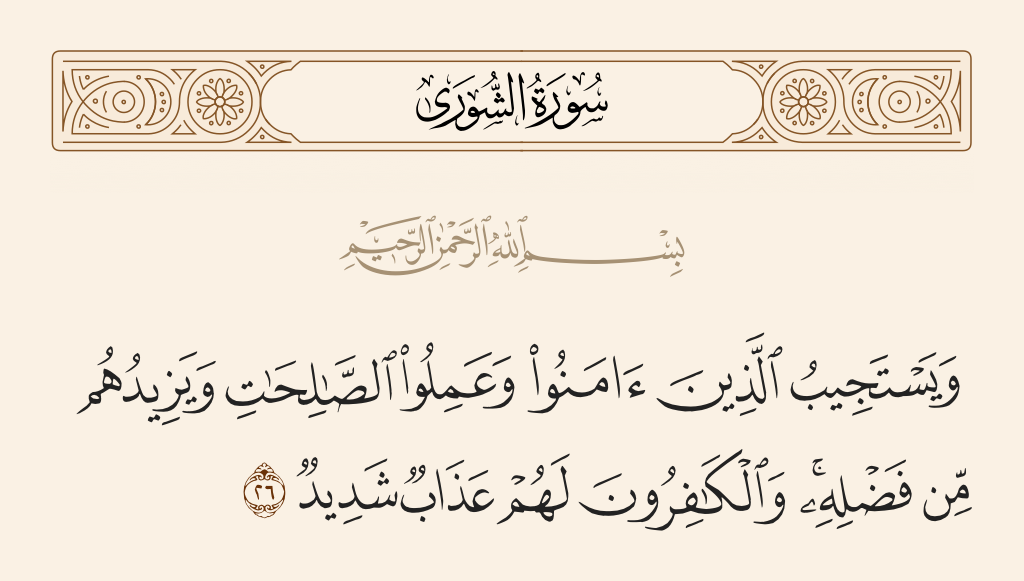 سُورَةُ الشُّورَىٰ
بِسْمِ ٱللَّهِ ٱلرَّحْمَٰنِ ٱلرَّحِيمِ
وَيَسْتَجِيبُ ٱلَّذِينَ ءَامَنُوا۟ وَعَمِلُوا۟ ٱلصَّـٰلِحَـٰتِ وَيَزِيدُهُم
مِّن فَضْلِهِۦ ۚ وَٱلْكَـٰفِرُونَ لَهُمْ عَذَابٌ شَدِيدٌ ٢٦